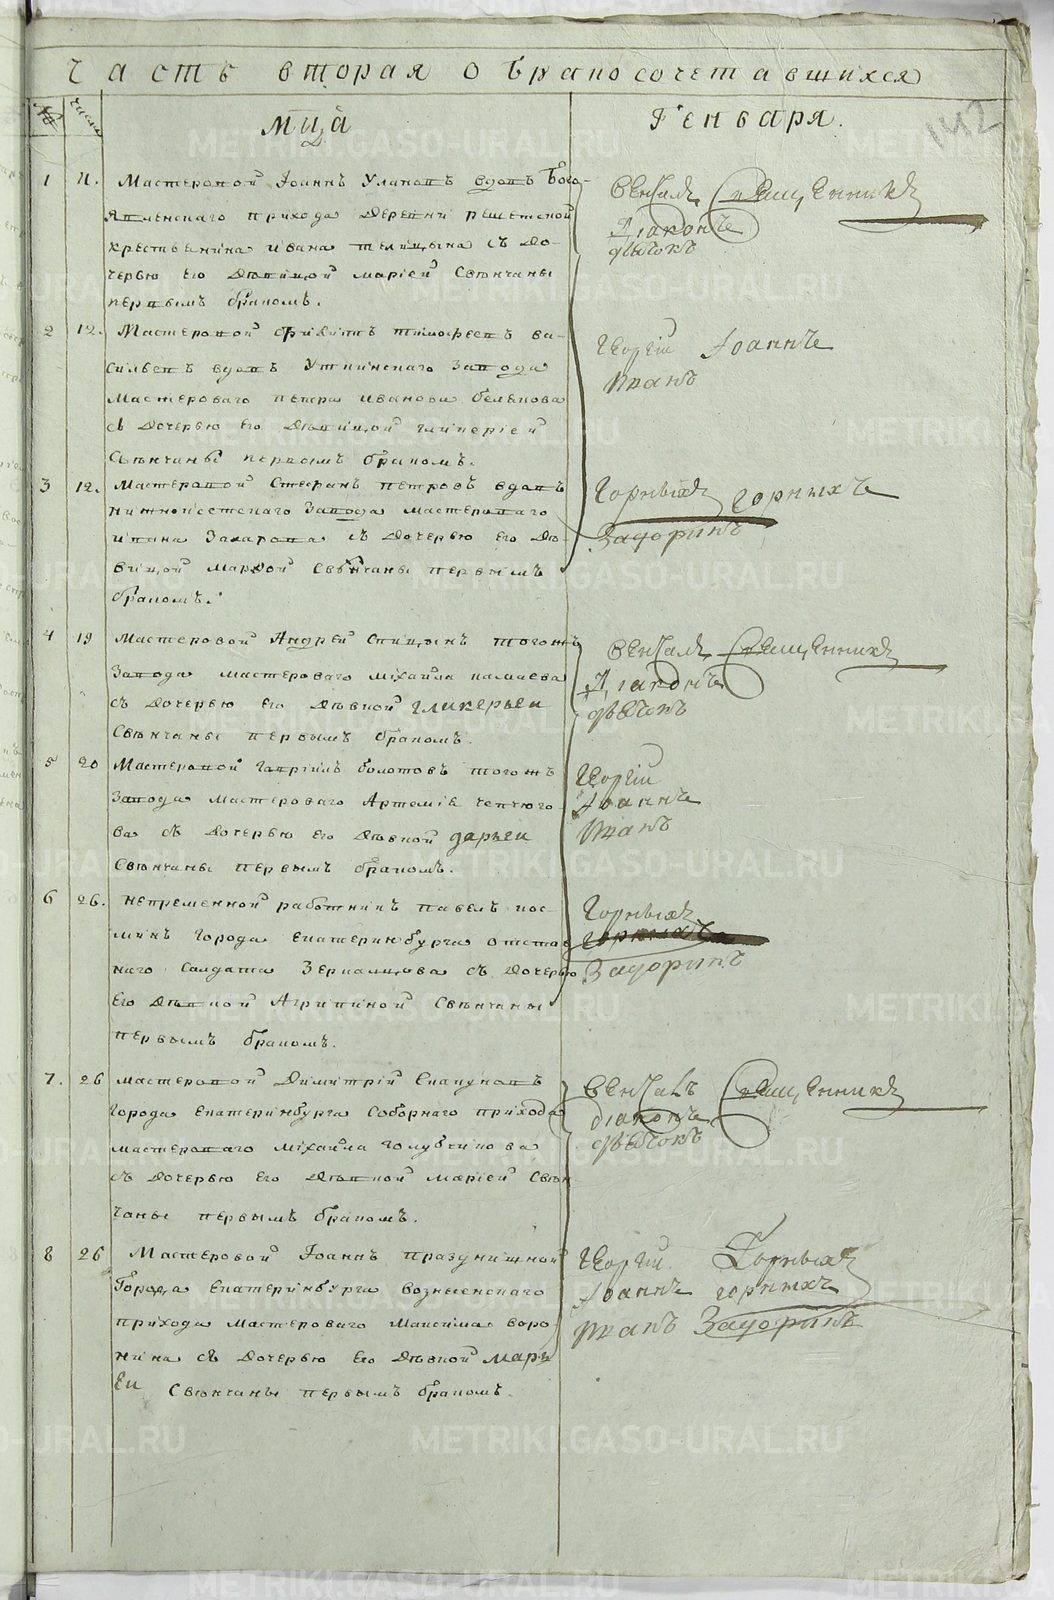 Часть вторая о бракосочетавшихся
№
числа
Мца
Генваря.
142
1
11.
Мастеровой Іоаннъ Улановъ вдовъ Бого-
явленскаго прихода деревни решетской
крестьянина ивана телицына съ до-
черью его девицой маріей Свѣнчаны
первымъ бракомъ.
Венчалъ Священникъ
Діаконъ
дьячокъ
2
12.
Мастеровой тимофеевъ ва-
сильевъ вдовъ Уткинскаго Завода
Мастероваго петра иванова белькова
съ дочерью его дѣвицой гликеріей
Свѣнчаны первымъ бракомъ.
Георгій Іоаннъ
Иванъ
3
12.
Мастеровой Стефанъ петровъ вдовъ
нижноисетскаго Завода мастероваго
ивана Захарова съ дочерью его дѣ-
вицой марфой Свѣнчаны первымъ
бракомъ.
Горныхъ горныхъ
Задоринъ
4
19
Мастеровой Андрей Спицынъ тогожъ
Завода мастероваго міхаила камаева
съ дочерью его дѣвкой гликерьеи
Свѣнчаны первымъ бракомъ.
Венчалъ Священникъ
Діаконъ
дьячекъ
5
20
Мастеровой Гавріилъ болотовъ тогожъ
Завода мастероваго Артеміе
ва съ дочерью его дѣвкой дарьеи
Свѣнчаны первымъ бракомъ.
Георгіи
Іоаннъ
Иванъ
6
26.
непременной работникъ павелъ кос-
минъ города екатеринбурга отстав
наго Салдата Зеркальцова съ дочерью
его дѣвкой Агрипиной Свѣнчаны
первымъ бракомъ.
Горныхъ
горныхъ
Задоринъ
7.
26
мастеровой Димитрій
города екатеринбурга Соборнаго прихода
мастероваго міхаила голубчикова
съ дочерью его дѣвкой маріей Свѣн
чаны первымъ бракомъ.
Венчалъ Священникъ
діаконъ
дьячокъ
8
26
Мастеровой Іоаннъ празднишной
Города екатеринбурга вознесенскаго
прихода мастероваго максима воро-
нина съ дочерью его дѣвкой марь
еи Свѣнчаны первымъ бракомъ.
Георгіи Горныхъ
Іоаннъ горныхъ
Иванъ Задоринъ
METRIKI.GASO-URAL.RU